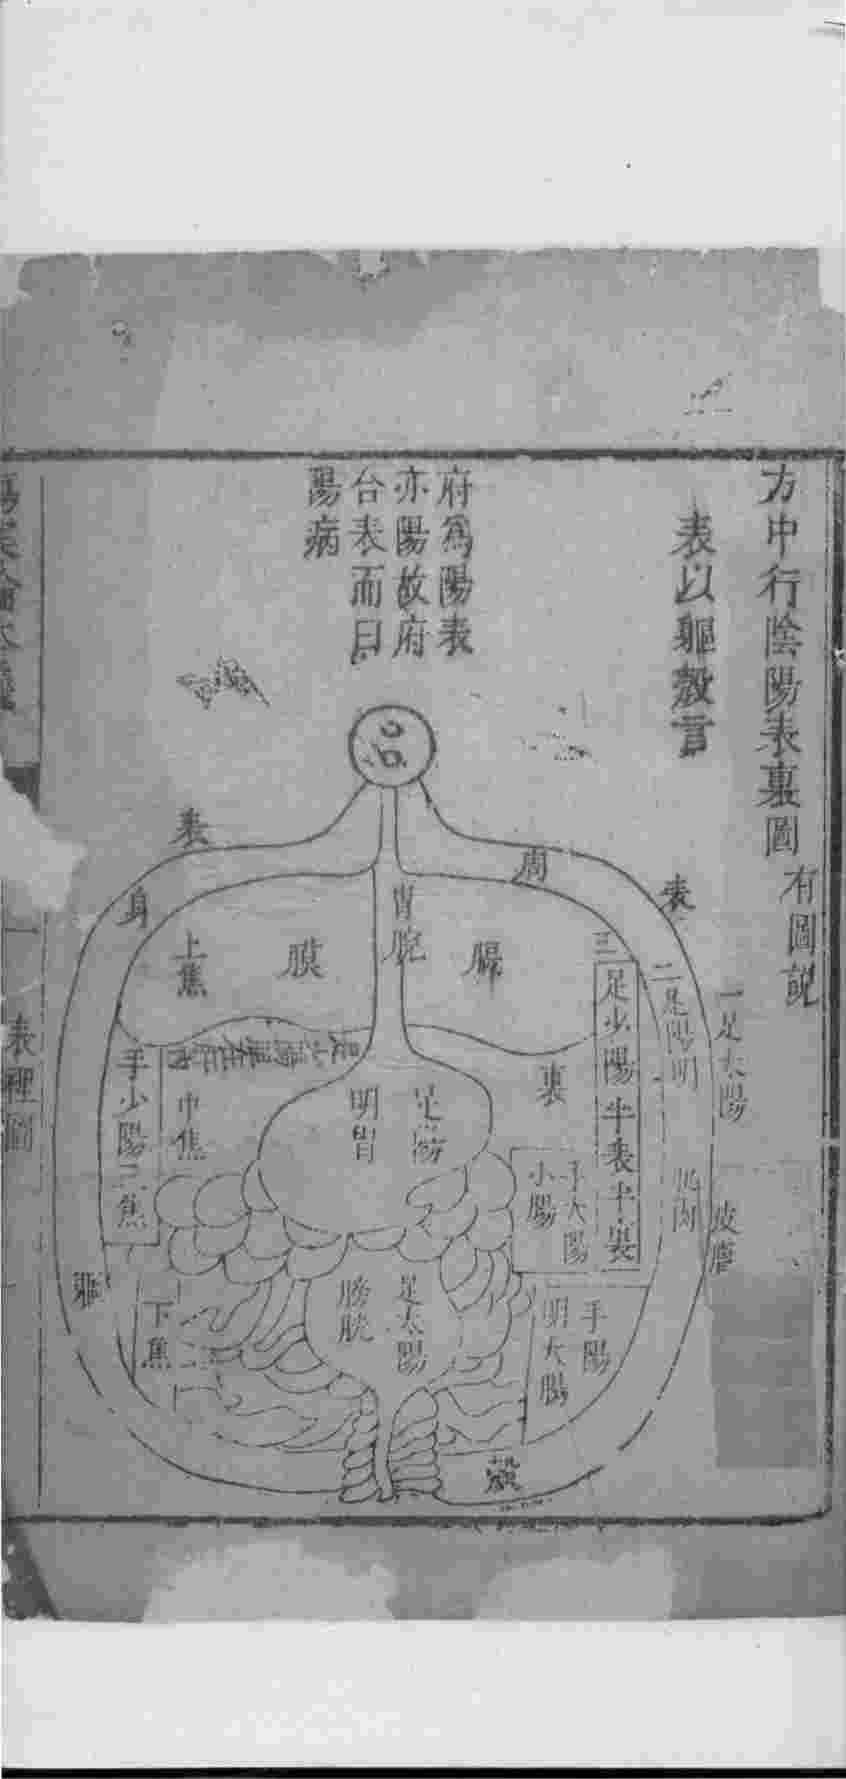 方中行陰陽表裏圖 有圖說
表以軀殼言
府為陽表
亦陽故府
合表而曰
陽病
表
周
表
身
上焦
膜
胃脘
膈
三
足少陽半表半裏
二足陽明
一足太陽
肌肉
皮膚
裏
手少陽三焦
中焦
足陽
明胃
手太陽
小腸
足太陽
膀胱
手陽
明大腸
下焦
軀
殼
表裡圖